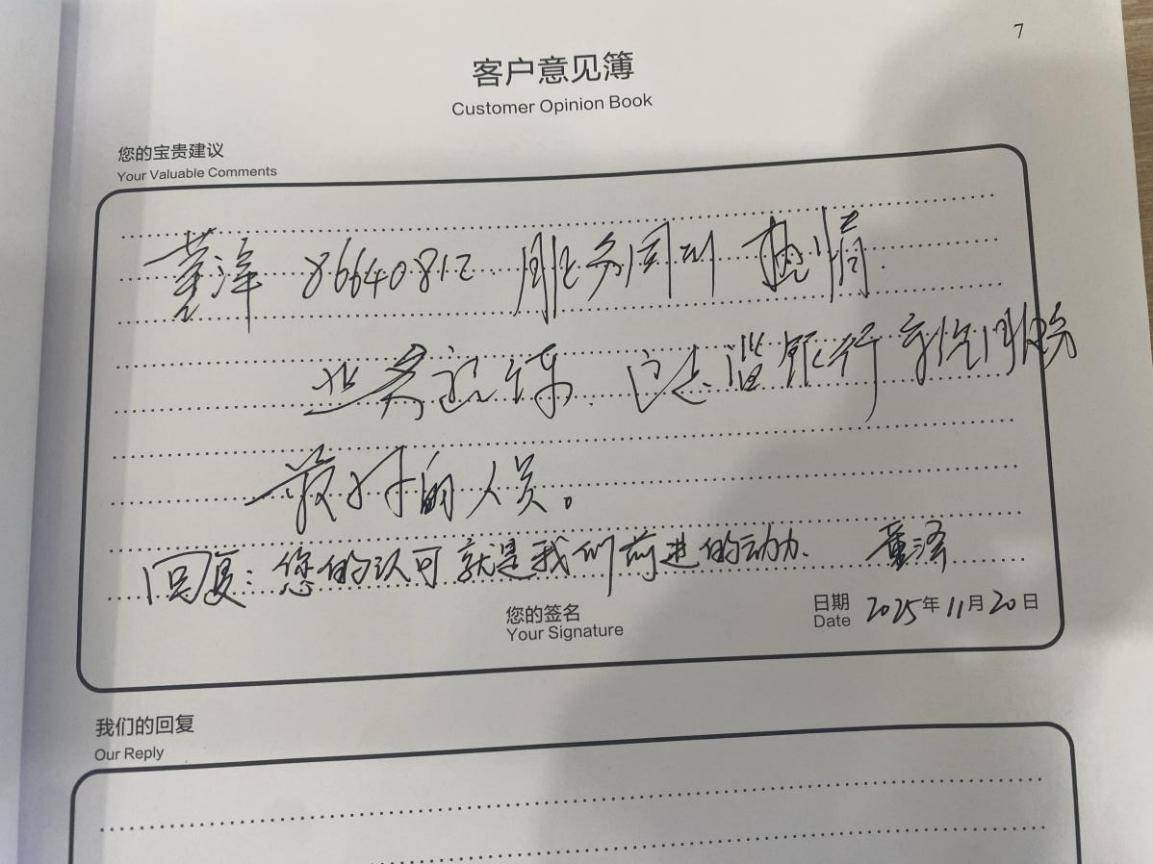 7
客户意见簿
Customer Opinion Book
您的宝贵建议
Your Valuable Comments
董泽 86640812 服务周到 热情.
业务熟练. 银行
最好的人员。
回复：您的认可就是我们前进的动力. 董泽
您的签名
Your Signature
日期
Date
2025年11月20日
我们的回复
Our Reply